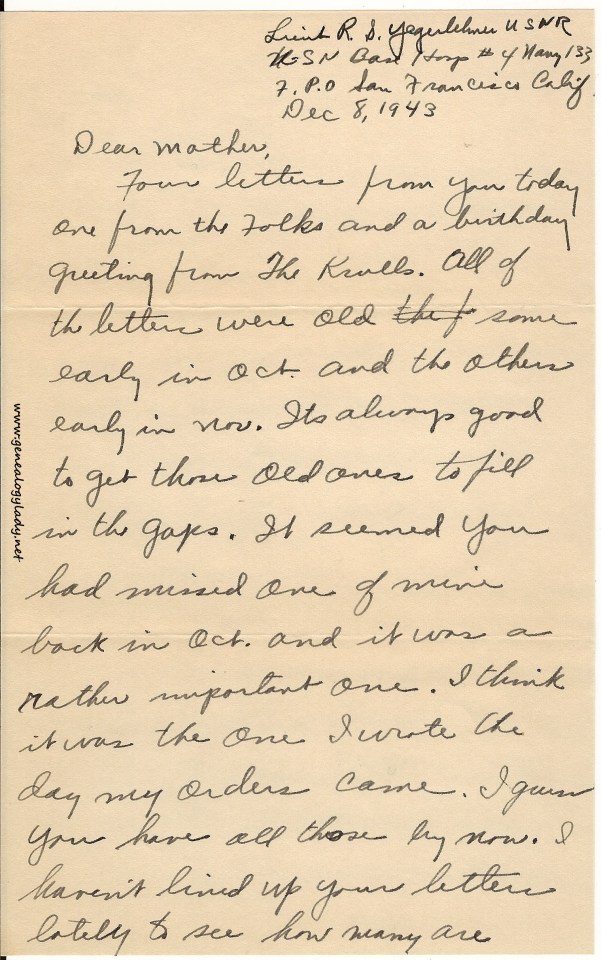 Lieut R. S. Yegerlehner USNR
USN Base Hosp # 4 Navy 133
F. P.O San Francisco Calif.
Dec 8, 1943
Dear Mother,
Four letters from you today
one from the Folks and a birthday
greeting from The Krulls. All of
the letters were old the f some
early in Oct. and the others
early in Nov. Its always good
to get those old ones to fill
in the gaps. It seemed you
had missed one of mine
back in Oct. and it was a
rather important one. I think
it was the one I wrote the
day my orders came. I guess
you have all those by now. I
haven't lined up your letters
lately to see how many are
www.genealogylady.net